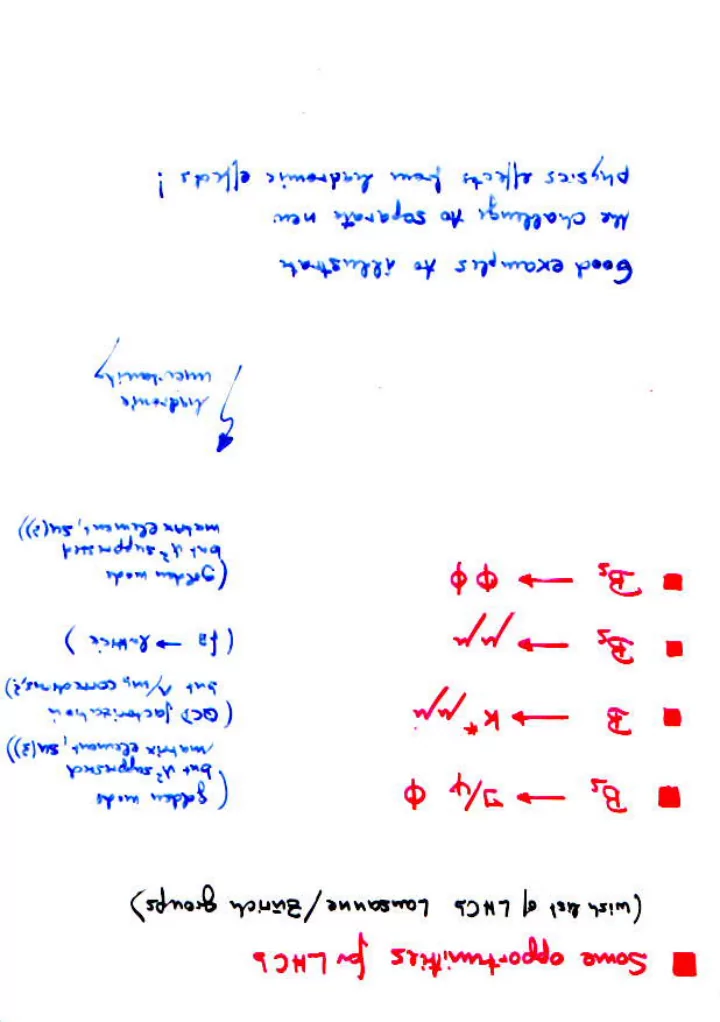 ■ Some opportunities for LHCb
(wish list of LHCb Lausanne/Zürich groups)
■ B_s → J/ψ ϕ (golden mode
but λ² suppressed
matrix element, SU(3))
■ B → K* μμ (QCD factorization
but 1/m_b corrections?)
■ B_s → μμ (f_B → lattice)
■ B_s → ϕ ϕ (golden mode
but λ² suppressed
matrix element, SU(3))
hadronic
uncertainty
Good examples to illustrate
the challenge to separate new
physics effects from hadronic effects!